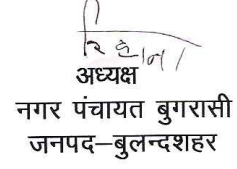 रिहाना
अध्यक्ष
नगर पंचायत बुगरासी
जनपद–बुलन्दशहर